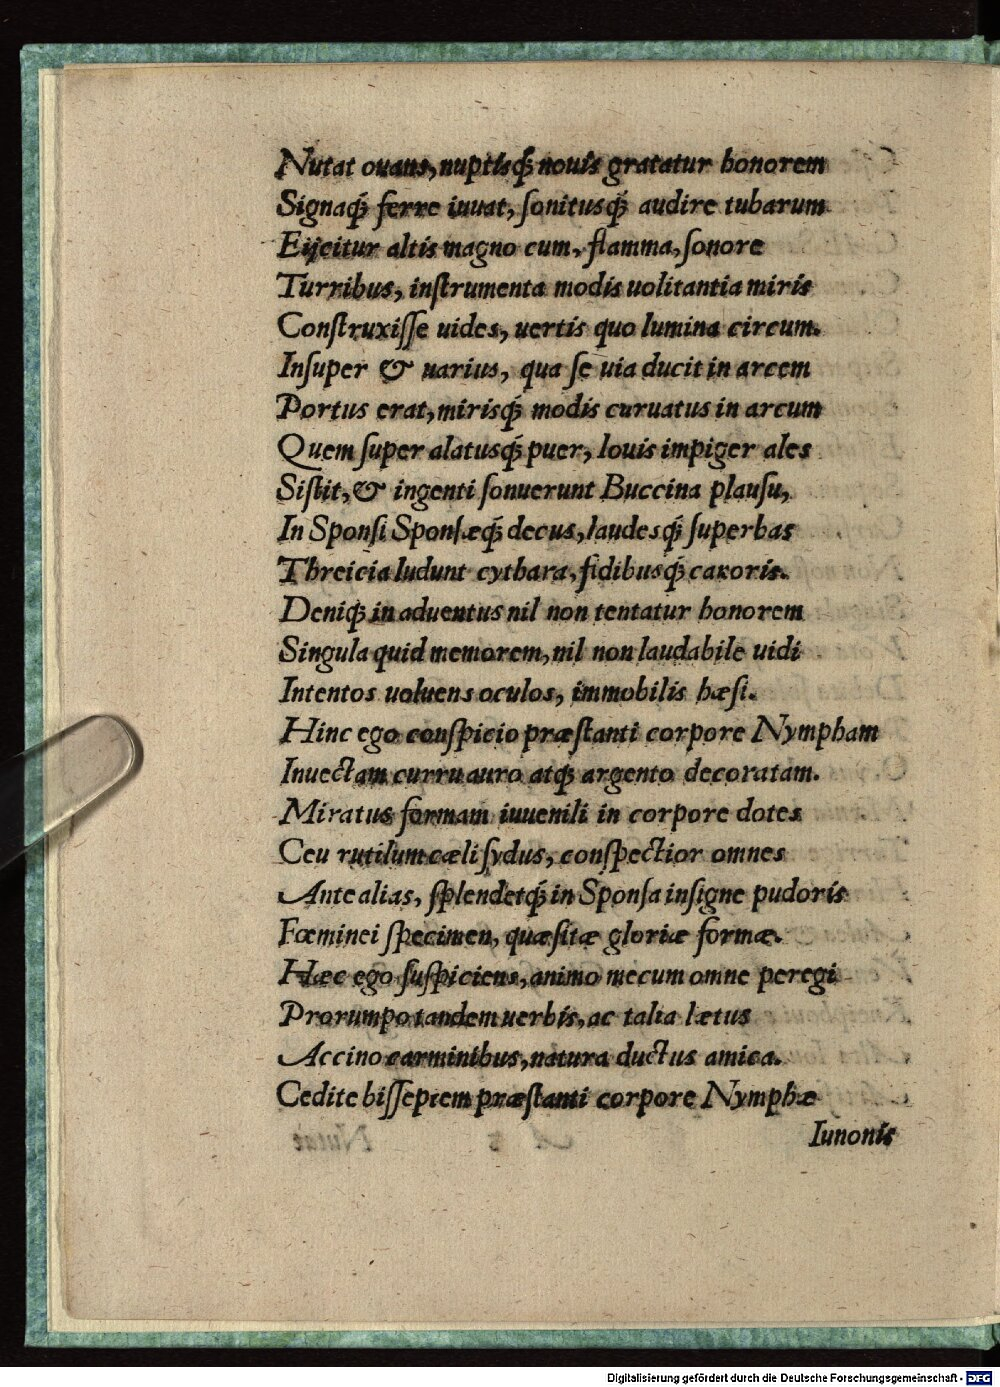 Nutat ouans, nuptisq́; nouis gratatur honorem
Signaq́; ferre iuuat, ſonitusq́; audire tubarum
Eijcitur altis magno cum, flamma, ſonore
Turribus, inſtrumenta modis uolitantia miris
Conſtruxiſſe uides, uertis quo lumina circum.
Inſuper & uarius, qua ſe uia ducit in arcem
Portus erat, mirisq́; modis curuatus in arcum
Quem ſuper alatusq́; puer, Iouis impiger ales
Siſtit, & ingenti ſonuerunt Buccina plauſu,
In Sponſi Sponſæq́; decus, laudesq́; ſuperbas
Threicia ludunt cythara, fidibusq́; canoris.
Deniq́; in aduentus nil non tentatur honorem
Singula quid memorem, nil non laudabile uidi
Intentos uoluens oculos, immobilis hæſi.
Hinc ego conſpicio præſtanti corpore Nympham
Inuectam curru auro atq́; argento decoratam.
Miratus formam iuuenili in corpore dotes
Ceu rutilum cæli ſydus, conſpectior omnes
Ante alias, ſplendetq́; in Sponſa inſigne pudoris
Fœminei ſpecimen, quæſitæ gloriæ formæ.
Hæc ego ſuſpiciens, animo mecum omne peregi
Prorumpo tandem uerbis, ac talia lætus
Accino carminibus, natura ductus amica.
Cedite biſſeptem præſtanti corpore Nymphæ
Iunonis
Digitalisierung gefördert durch die Deutsche Forschungsgemeinschaft - DFG